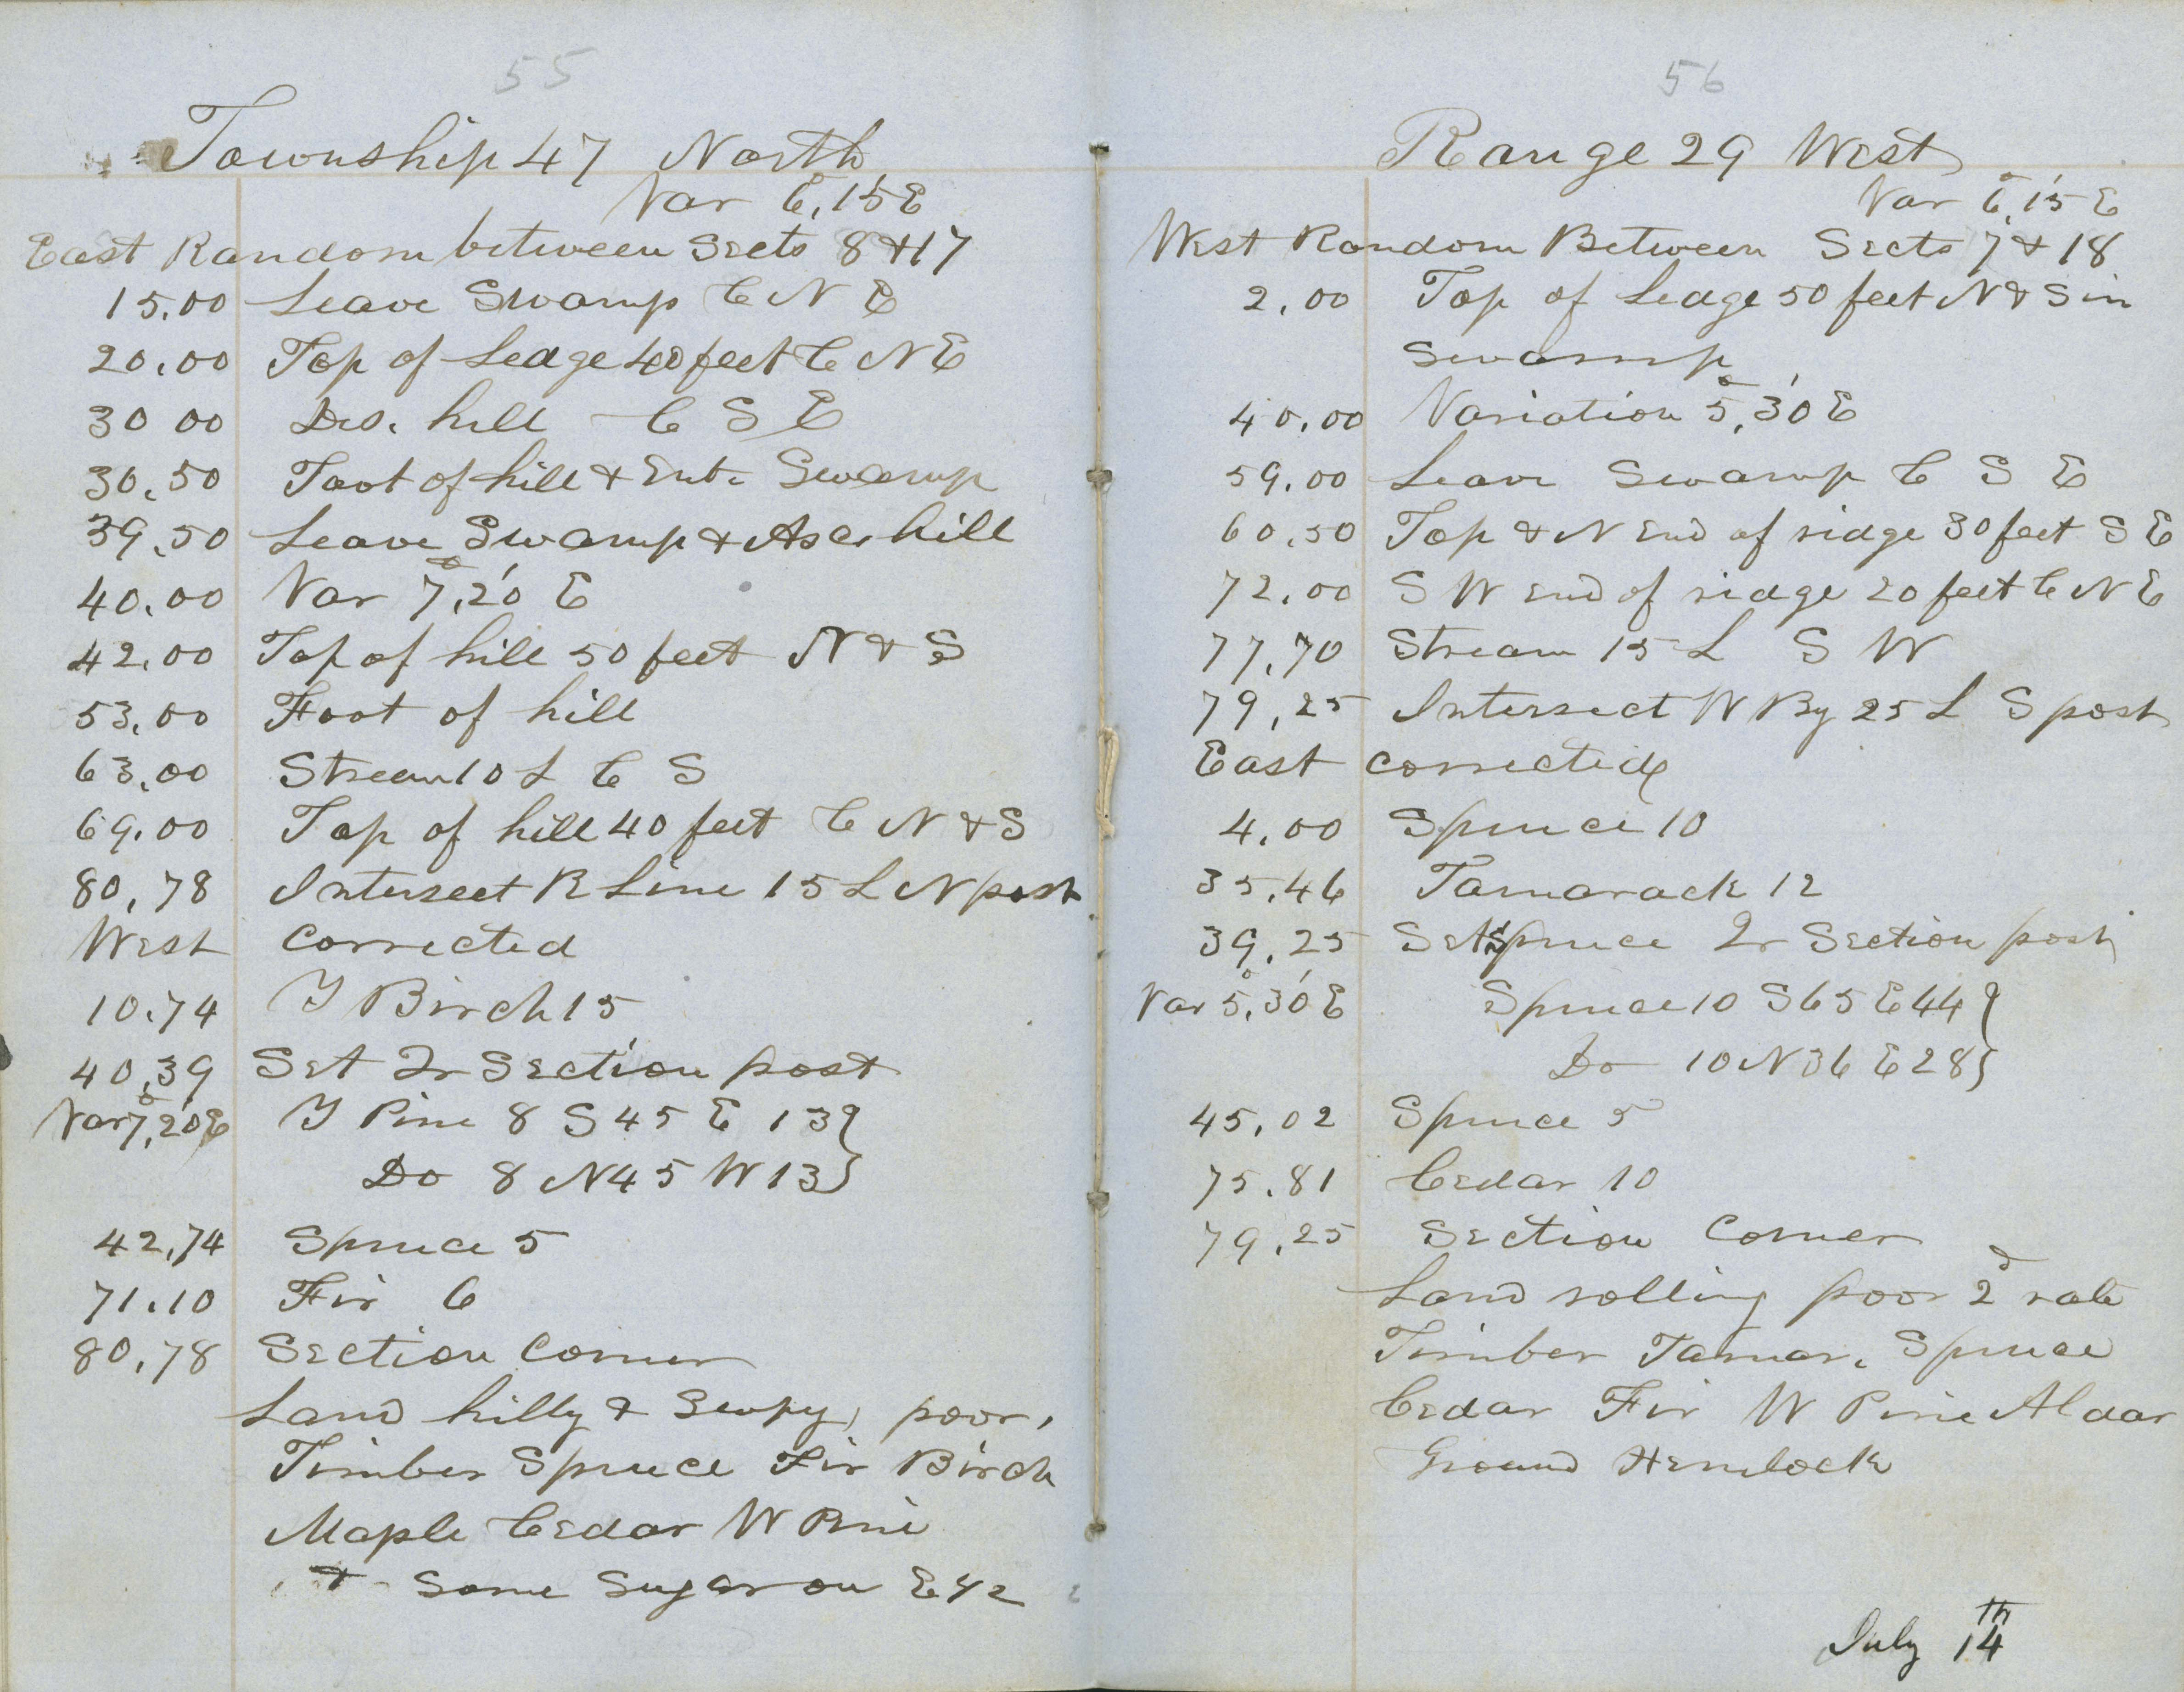 55
Township 47 North
Var 6°,15' E
East Random between Sects 8 & 17
15.00 Leave Swamp C N E
20.00 Top of Ledge 40 feet C N E
30 00 Des. hill C S E
30.50 Foot of hill & Ent. Swamp
39.50 Leave Swamp & Asc. hill
40.00 Var 7°,20' E
42.00 Top of hill 50 feet N & S
53.00 Foot of hill
63.00 Stream 10 L C S
69.00 Top of hill 40 feet C N & S
80,78 Intersect R Line 15 L N post
West Corrected
10.74 Y Birch 15
40,39 Set Qr Section post
Var 7°,20' E Y Pine 8 S 45 E 13}
Do 8 N 45 W 13}
42,74 Spruce 5
71.10 Fir 6
80,78 Section Corner
Land hilly & Swpy, poor,
Timber Spruce Fir Birch
Maple Cedar W Pine
& Some Sugar on E 1/2
56
Range 29 West
Var 6°,15' E
West Random Between Sects 7 & 18
2,00 Top of Ledge 50 feet N & S in
Swamp
40.00 Variation 5°,30' E
59.00 Leave Swamp C S E
60.50 Top & N End of ridge 30 feet S E
72.00 S W End of ridge 20 feet C N E
77.70 Stream 15 L S W
79,25 Intersect W By 25 L S post
East corrected
4.00 Spruce 10
35.46 Tamarack 12
39,25 Set Spruce Qr Section post
Var 5°,30' E Spruce 10 S 65 E 44}
Do 10 N 36 E 28}
45,02 Spruce 5
75.81 Cedar 10
79,25 Section Corner
Land rolling poor 2d rate
Timber Tamar. Spruce
Cedar Fir W Pine Aldar
Ground Hemlock
July 14th